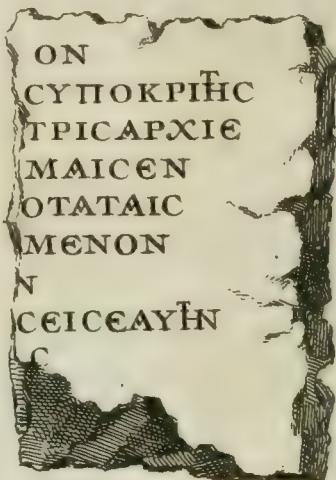 ΟΝ
ϹΥΠΟΚΡΙΤΗϹ
ΤΡΙϹΑΡΧΙΕ
ΜΑΙϹΕΝ
ΟΤΑΤΑΙϹ
ΜΕΝΟΝ
Ν
ϹΕΙϹΕΑΥΤΗΝ
Ϲ